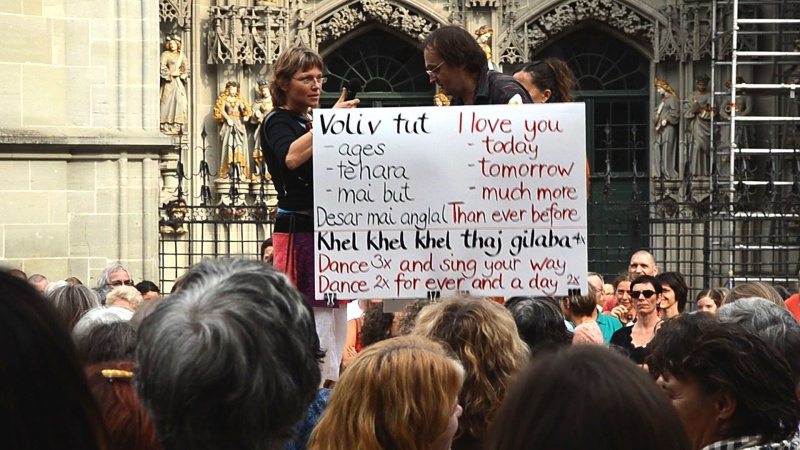 Voliv tut I love you
- ages - today
- tehara - tomorrow
- mai but - much more
Desar mai anglal Than ever before
Khel khel khel thaj gilaba 4x
Dance 3x and sing your way
Dance 2x for ever and a day 2x